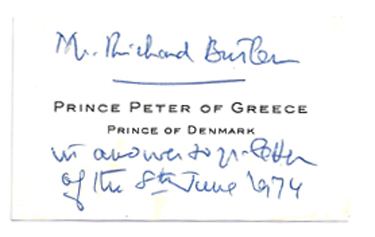 Mr. Richard Butler
PRINCE PETER OF GREECE
PRINCE OF DENMARK
in answer to yr. letter
of the 8th June 1974